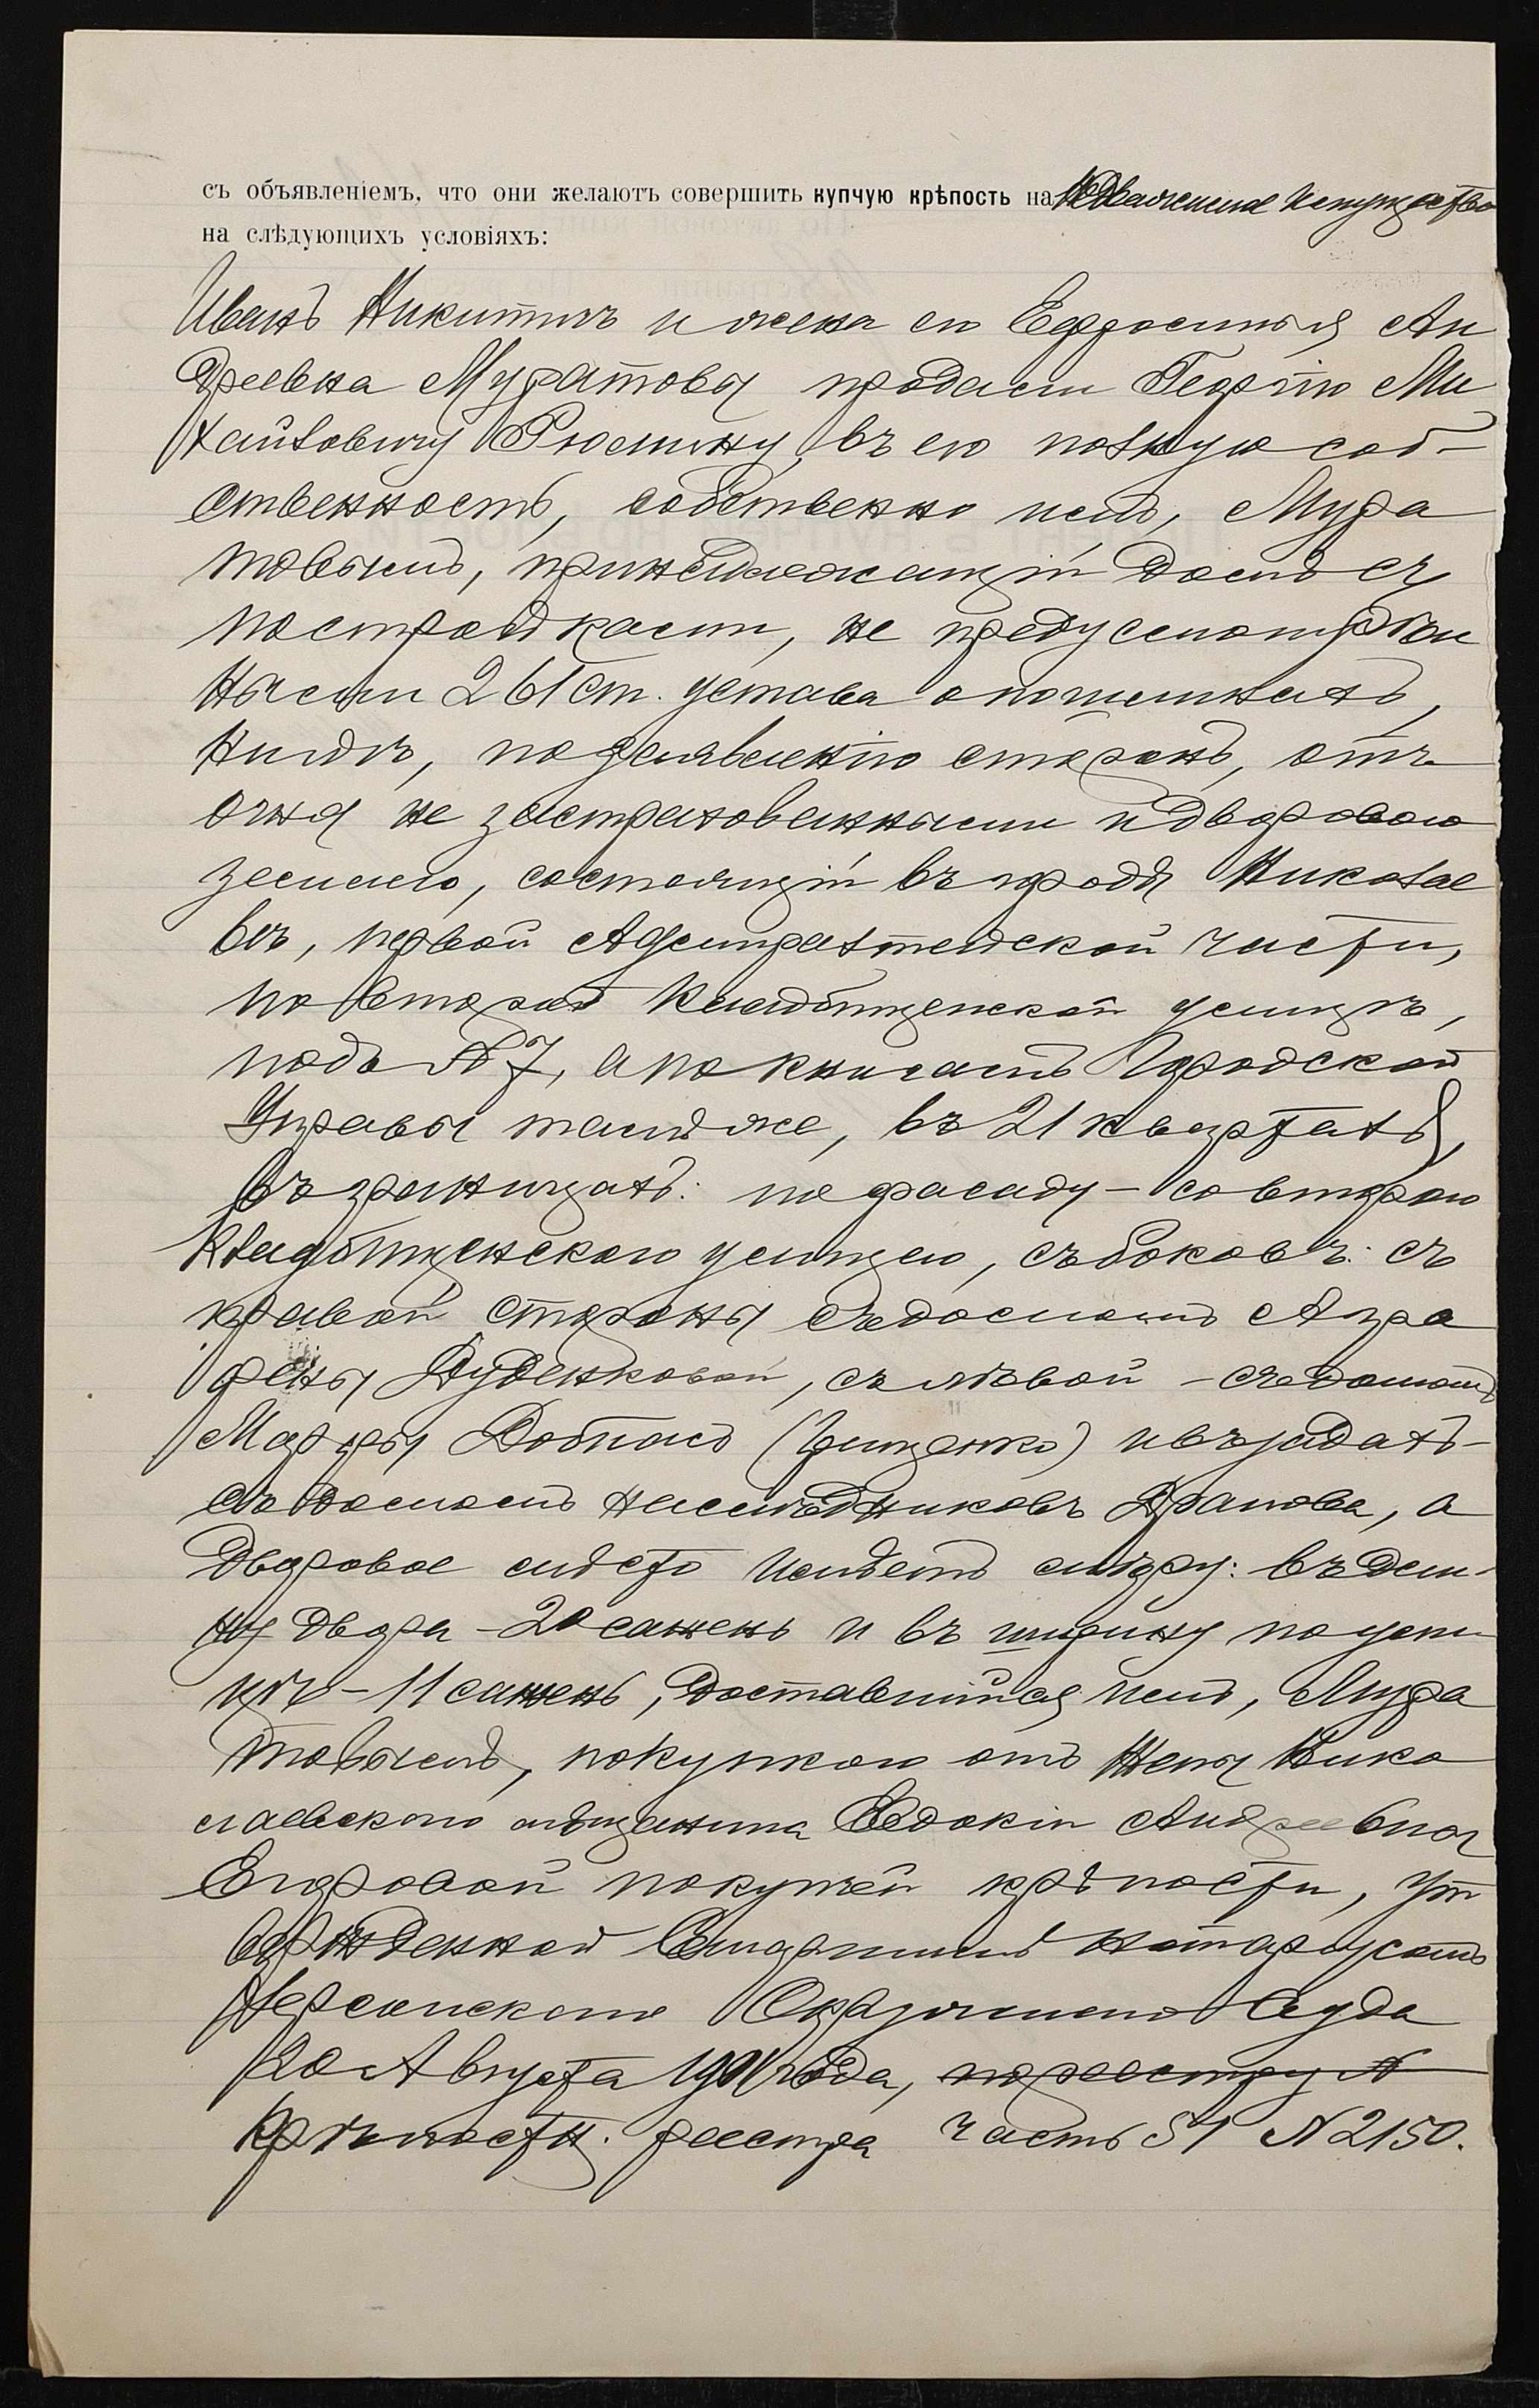 съ объявленіемъ, что они желаютъ совершить купчую крѣпость на недвижимое имущество
на слѣдующихъ условіяхъ:
Иванъ Никитичъ и жена его Ефросинья Ан
дреевна Муратовы продали Георгію Ми
хайловичу Рюмину, въ его полную соб-
ственность, собственно имъ, Мура
товымъ, принадлежащій домъ съ
постройками, не предусмотрѣн
ными 261 ст. устава о пошлинахъ,
нигдѣ, по заявленію сторонъ, отъ
огня не застрахованными и дворовою
землею, состоящій въ городѣ Николае
вѣ, первой Адмиралтейской части,
по второй Кладбищенской улицѣ,
подъ № 7, а по книгамъ Городской
Управы тамъ же, въ 21 кварталѣ,
въ границахъ: по фасаду - со второю
Кладбищенскою улицею, съ боковъ: съ
правой стороны съ домомъ Агра
фены Дуденковой, съ лѣвой - съ домомъ
Марфы (Грищенко) и въ задахъ -
съ домомъ наслѣдниковъ Драпова, а
дворовое мѣсто имѣетъ мѣру: въ дли-
ну двора - 20 сажень и въ ширину по ули
цѣ - 11 сажень, доставшійся имъ, Мура
товымъ, покупкою отъ жены Нико
лаевского мѣщанина Евдокіи Андреевны
Егоровой по купчей крѣпости, ут
вержденной Старшимъ Нотаріусомъ
Херсонскаго Окружнаго Суда
20 Августа 1901 года, по реестру №
крѣпостн. реестра часть 51 № 2150.